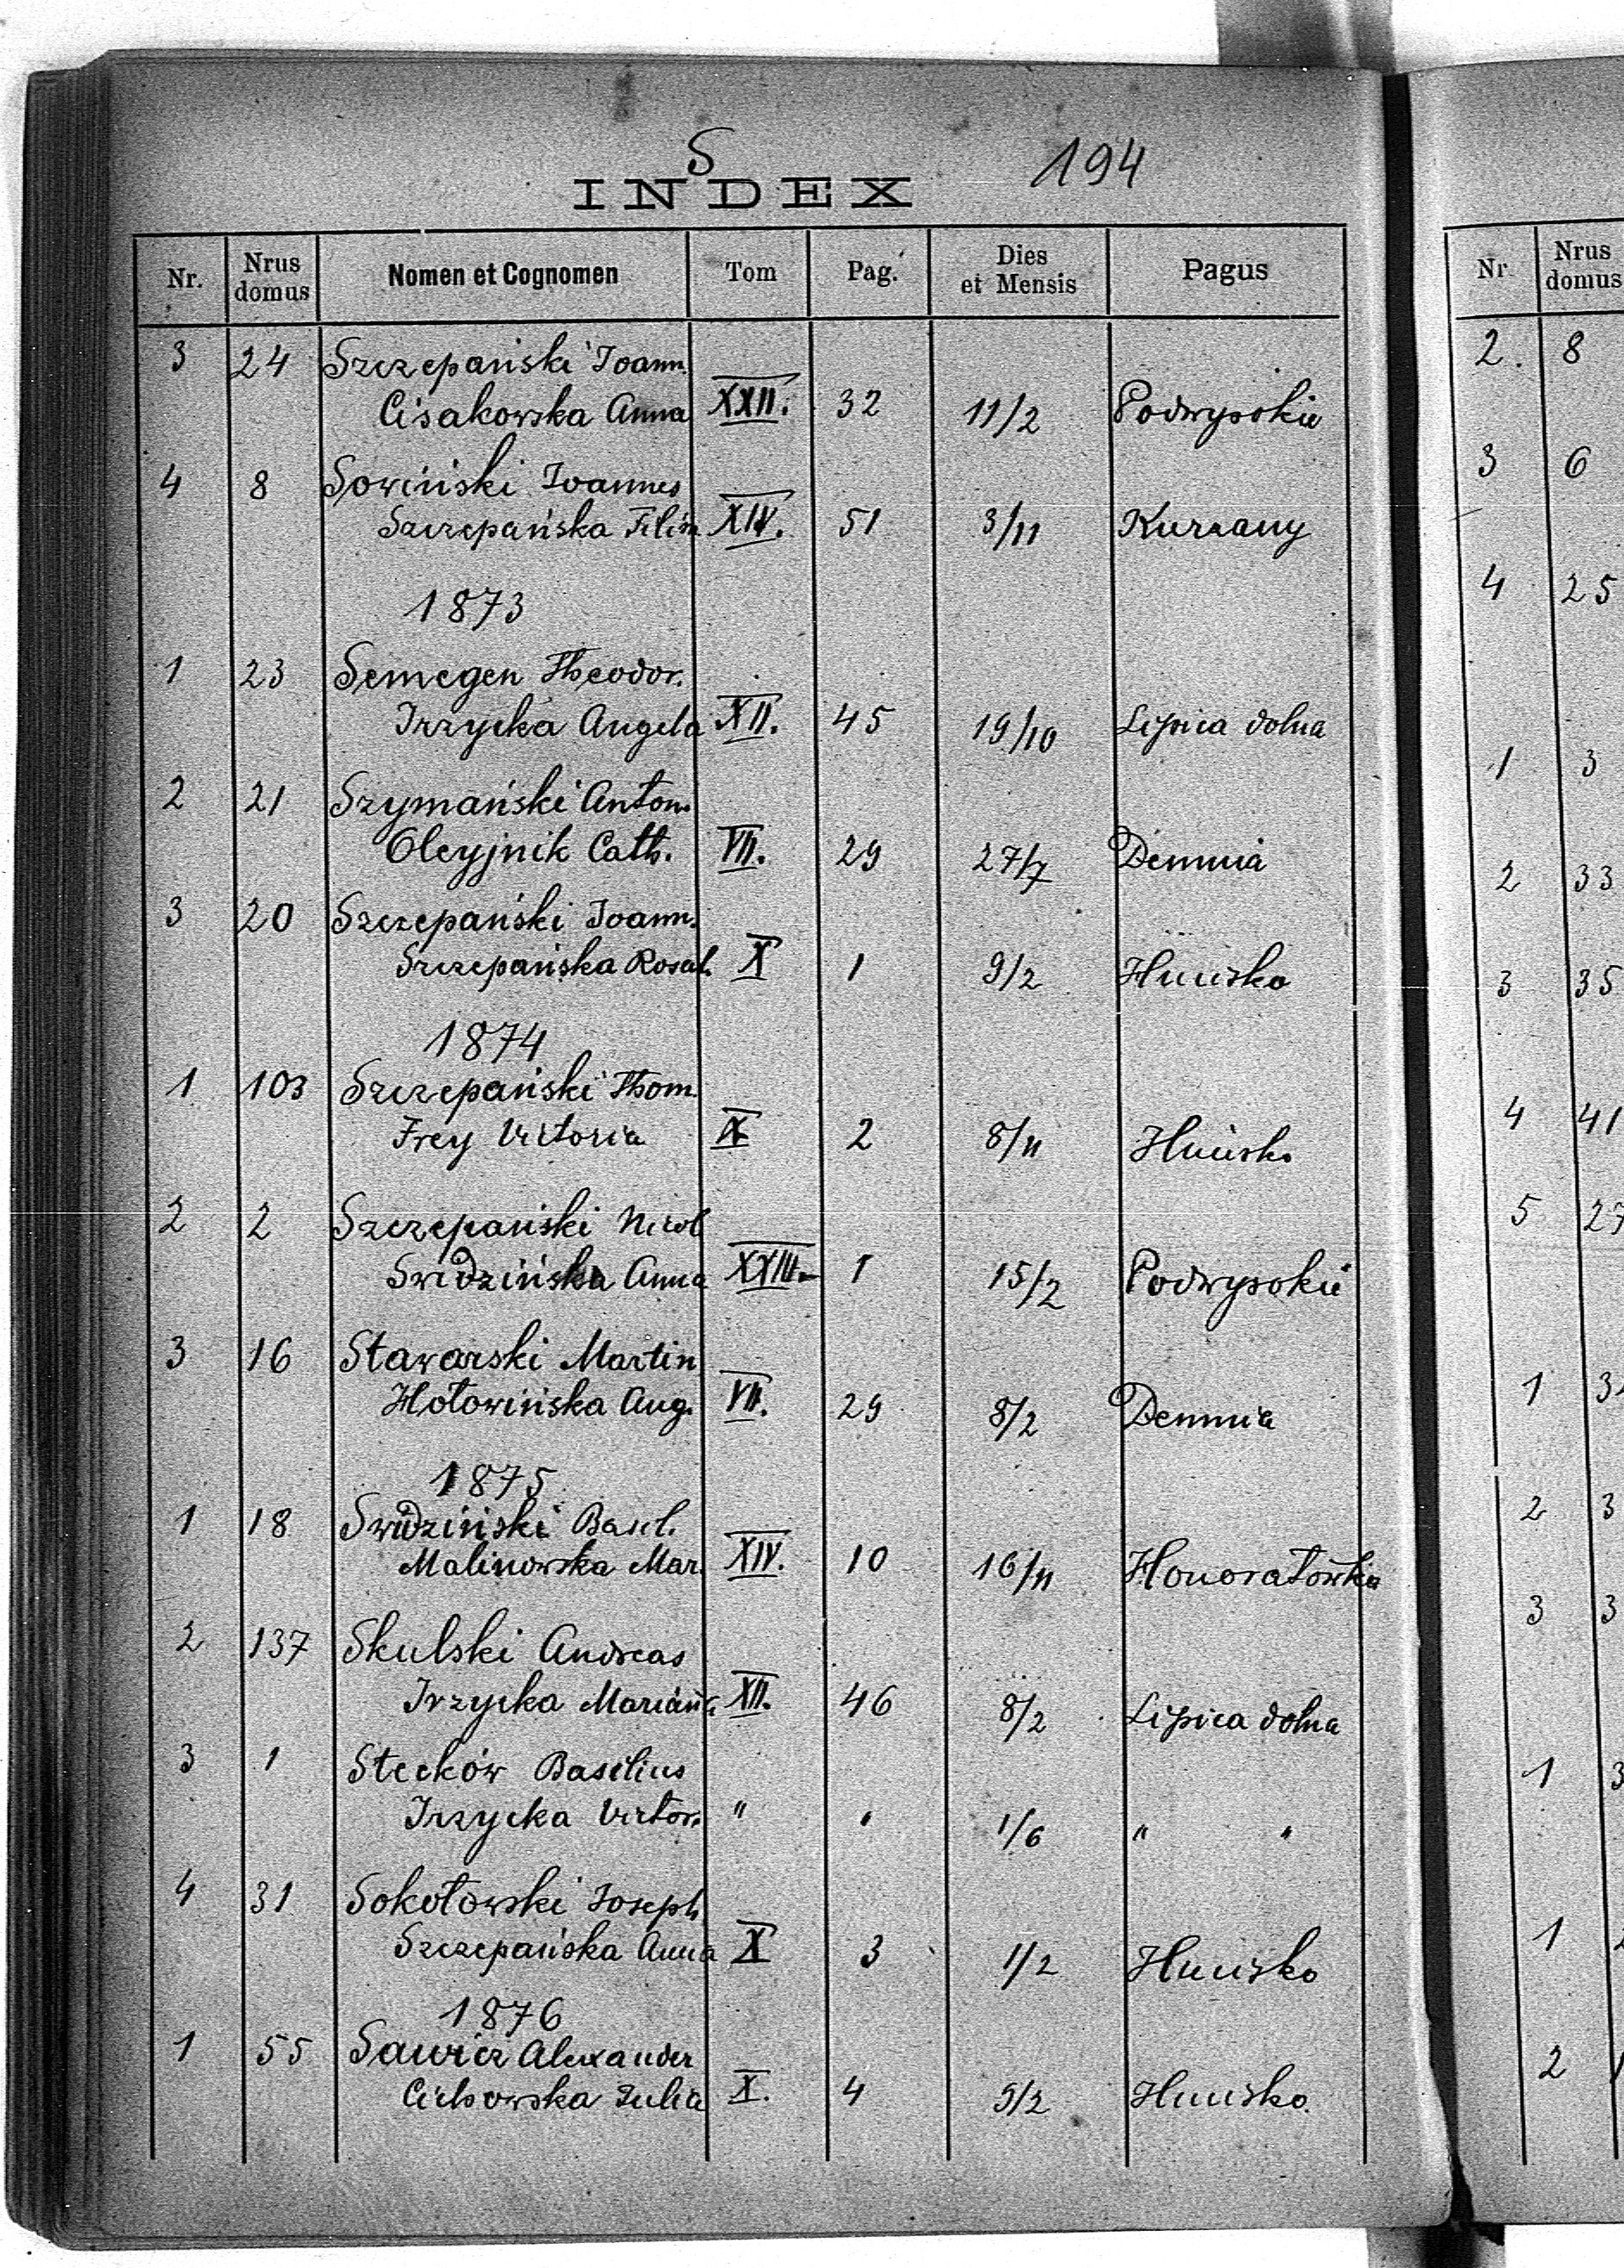 S
194
INDEX
Nr. Nrus domus Nomen et Cognomen Tom Pag. Dies et Mensis Pagus
3 24 Szczepański Joann.
Cisakowska Anna XXII. 32 11/2 Podwysokie
4 8 Sowiński Joannes
Szczepańska XIV. 51 3/11 Kurzany
1873
1 23 Semegen Theodor.
Irzycka Angela XII. 45 19/10 Lipica dolna
2 21 Szymański Anton.
Oleyjnik Cath. VII. 29 27/7 Demnia
3 20 Szczepański Joann.
Szczepańska Rosal. X 1 9/2 Hucisko
1874
1 103 Szczepański Thom.
Frey Victoria X 2 8/11 Hucisko
2 2 Szczepański Nicol
Swidzińska Anna XXIII. 1 15/2 Podwysokie
3 16 Stawarski Martin
Hołowińska Aug. VII. 29 8/2 Demnia
1875
1 18 Swidziński Basil.
Malinowska Mar. XIV. 10 16/11 Honoratówka
2 137 Skulski Andreas
Irzycka Mariann XII. 46 8/2 Lipica dolna
3 1 Stecków Basilius
Irzycka Victor. " " 1/6 " "
4 31 Sokołowski Joseph
Szczepańska Anna X 3 1/2 Hucisko
1876
1 55 Sawicz Alexander
Cichowska Julia X. 4 5/2 Hucisko.
Nr Nrus domus
2. 8
3 6
4 25
1 3
2 33
3 35
4 41
5 27
1 3
2 3
3 3
1 3
1
2